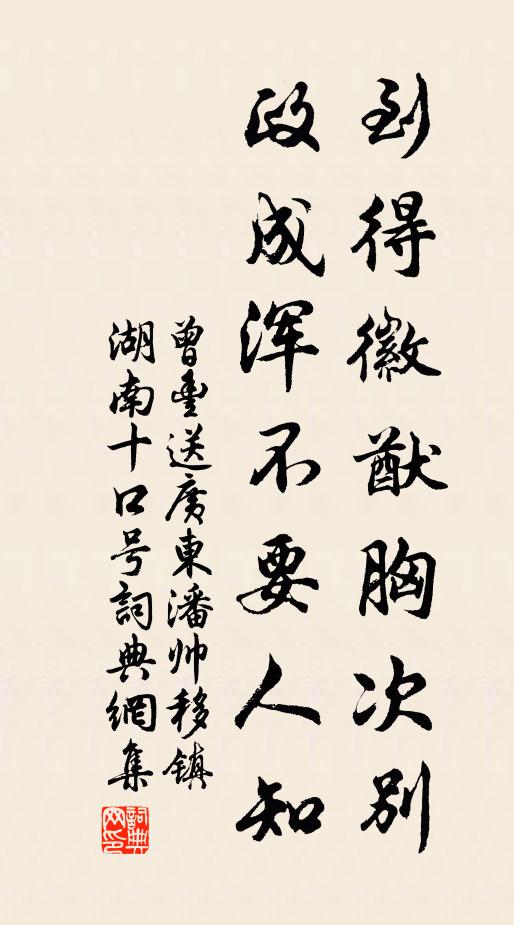 到得徽猷胸次别
政成浑不要人知
曾豊送廣東潘帅移镇
湖南十口号詞典網集
詞典网印